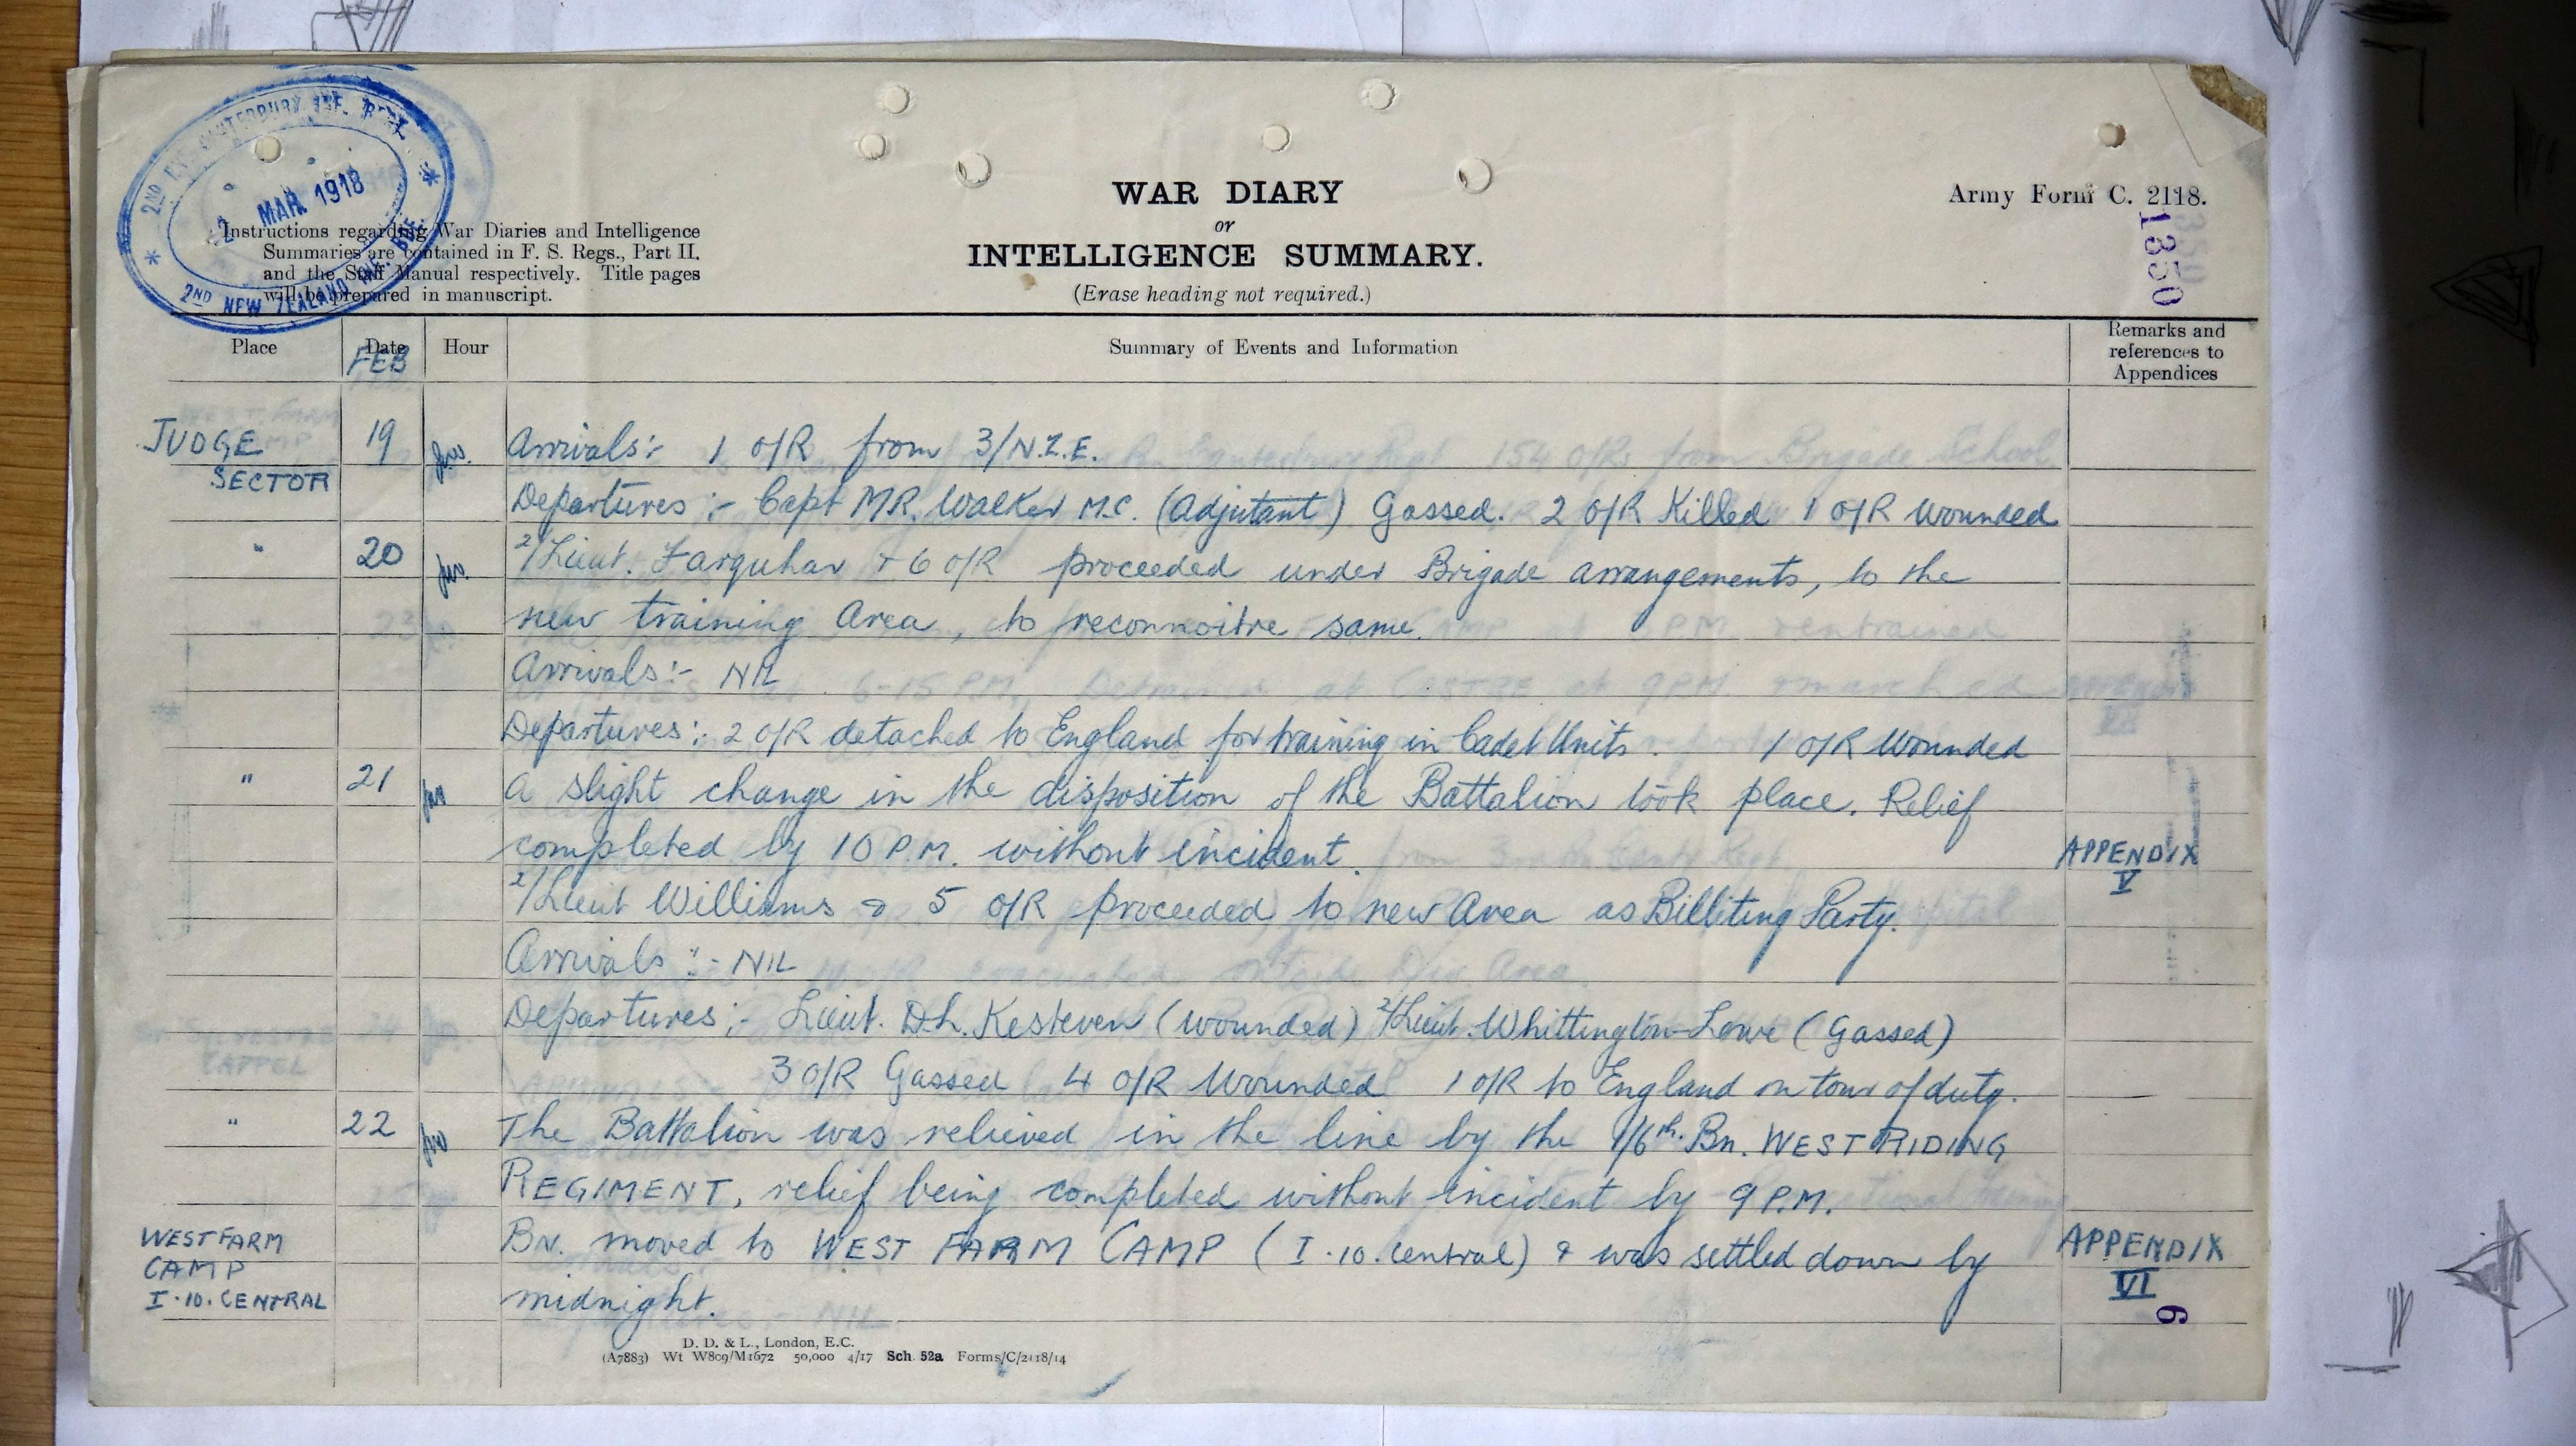 2ND BN. CANTERBURY INF. REGT.
2 MAR. 1918
2ND NEW ZEALAND INF. BDE.
Instructions regarding War Diaries and Intelligence
Summaries are contained in F. S. Regs., Part II.
and the Staff Manual respectively. Title pages
will be prepared in manuscript.
WAR DIARY
or
INTELLIGENCE SUMMARY.
(Erase heading not required.)
Army Form C. 2118.
1350
Place Date Hour Summary of Events and Information Remarks and references to Appendices
FEB
JUDGE SECTOR 19 Arrivals:- 1 O/R from 3/N.Z.E.
Departures:- Capt M.R. Walker M.C. (Adjutant) Gassed. 2 O/R Killed 1 O/R Wounded
" 20 2/Lieut. Farquhar + 6 O/R proceeded under Brigade arrangements, to the
new training Area, to reconnoitre same.
Arrivals:- NIL
Departures:- 2 O/R detached to England for training in Cadet Units. 1 O/R Wounded
" 21 A slight change in the disposition of the Battalion took place. Relief
completed by 10 P.M. without incident. APPENDIX V
2/Lieut Williams & 5 O/R proceeded to new Area as Billiting Party.
Arrivals:- NIL
Departures:- Lieut. D.L. Kesteven (Wounded) 2/Lieut. Whittington-Lowe (Gassed)
3 O/R Gassed 4 O/R Wounded 1 O/R to England on tour of duty.
" 22 The Battalion was relieved in the line by the 1/6th. Bn. WEST RIDING
REGIMENT, relief being completed without incident by 9 P.M.
WEST FARM CAMP I.10.CENTRAL Bn. moved to WEST FARM CAMP (I.10.Central) & was settled down by APPENDIX VI
midnight.
6
D. D. & L., London, E.C.
(A7883) Wt W809/M1672 50,000 4/17 Sch. 52a Forms/C/2118/14